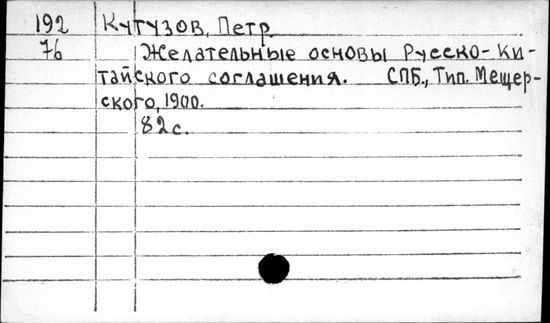 192 Кутузов, Петр
76 Желательные основы Русско-Ки-
тайского соглашения. СПБ., Тип. Мещер-
ского, 1900.
82 с.